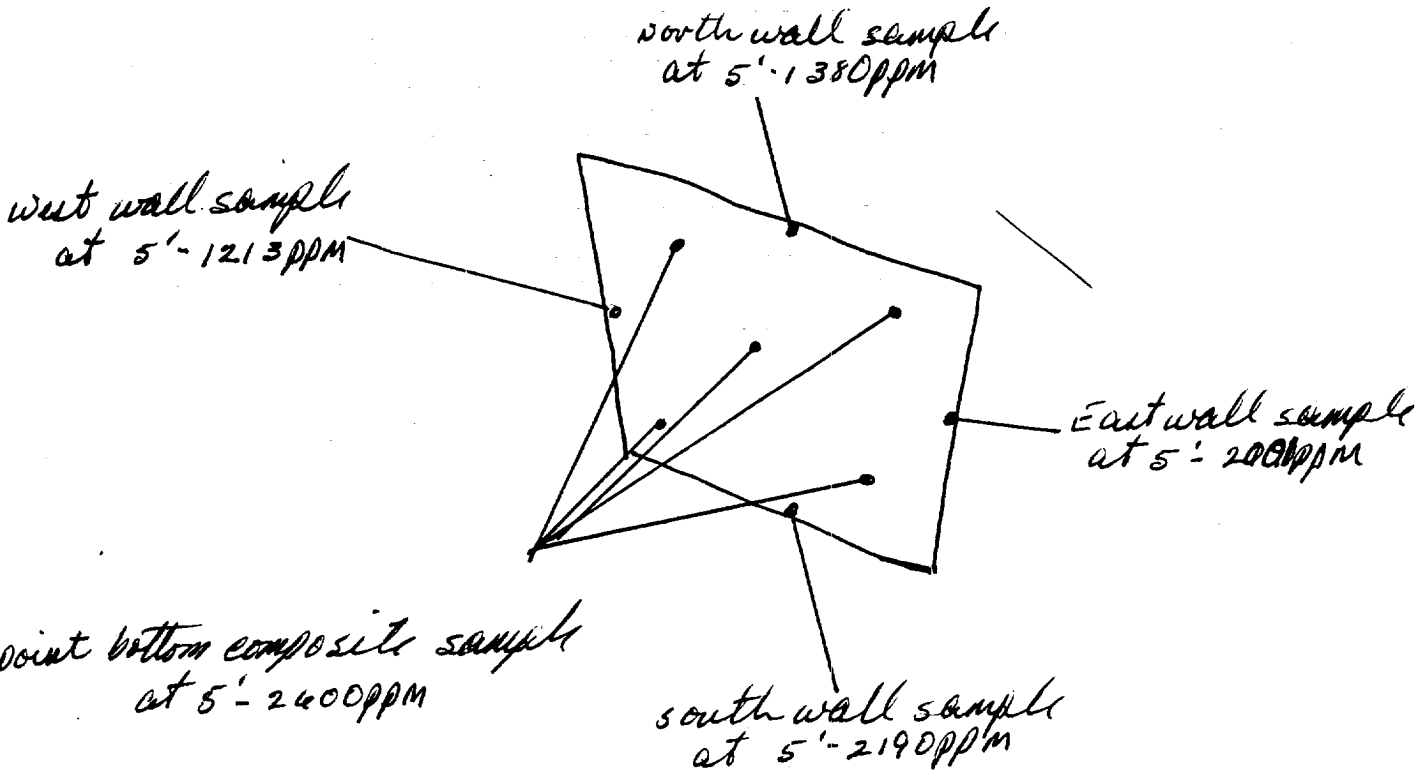 north wall sample
at 5'-1380ppm
west wall sample
at 5'-1213ppm
East wall sample
at 5'-
point bottom composite sample
at 5'-
south wall sample
at 5'-2190ppm